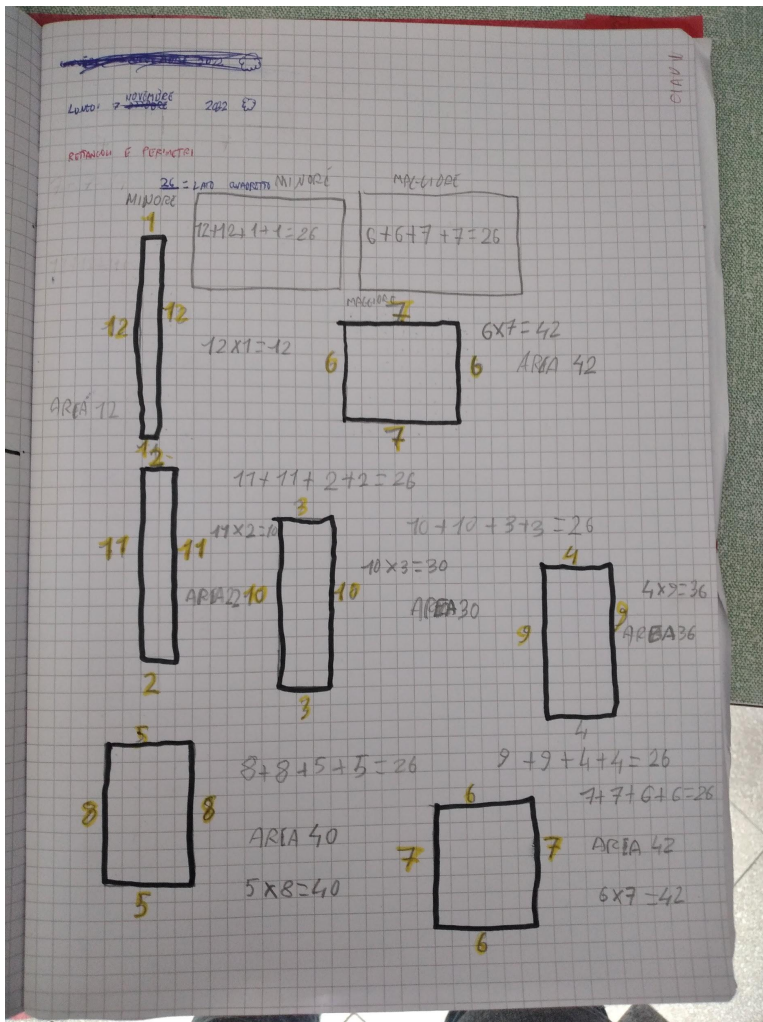 LUNEDI 7 NOVEMBRE 2022
RETTANGOLI E PERIMETRI
26 = LATO QUADRETTO
MINORE
MAGGIORE
MINORE
12+12+1+1=26
6+6+7+7=26
1
12
12
12X1=12
AREA 12
1
MAGGIORE
7
6
6
7
6X7=42
AREA 42
2
11
11
2
11+11+2+2=26
11X2=
AREA22
3
10
10
3
10+10+3+3=26
10X3=30
AREA30
4
9
9
4
4X9=36
AREA36
9+9+4+4=26
5
8
8
5
8+8+5+5=26
AREA 40
5X8=40
6
7
7
6
7+7+6+6=26
AREA 42
6X7=42